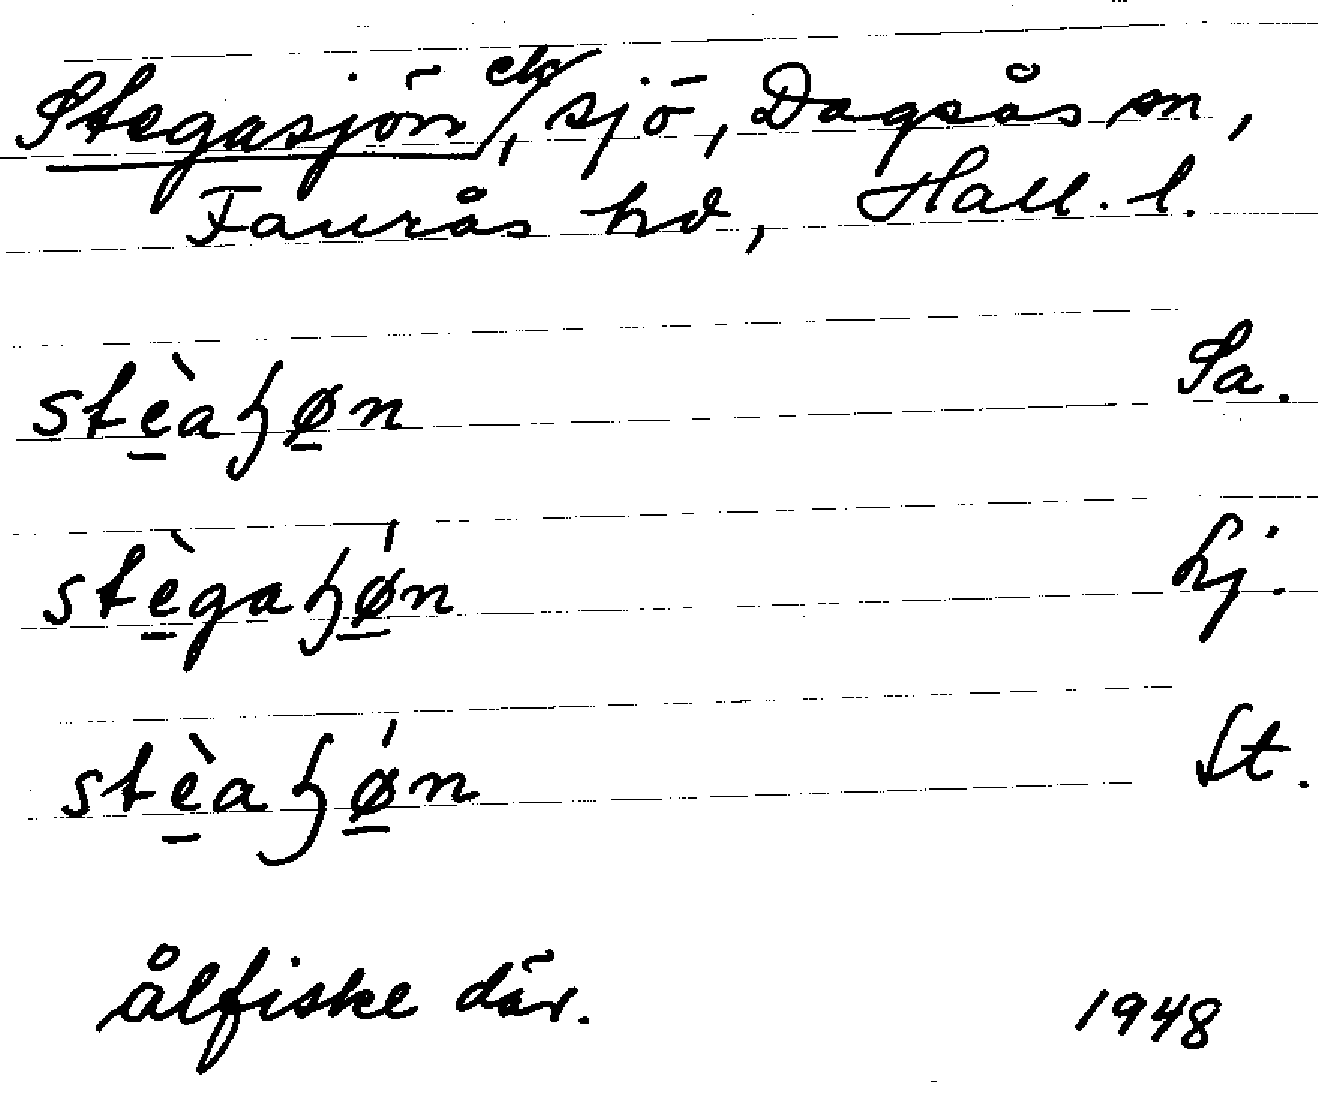 Stegasjön ek, sjö, Dagsås sn,
Faurås hd, Hall. l.
stè̱aꜧø̱n Sa.
stè̱gaꜧǿ̱n Lj.
stè̱aꜧǿ̱n St.
ålfiske där. 1948